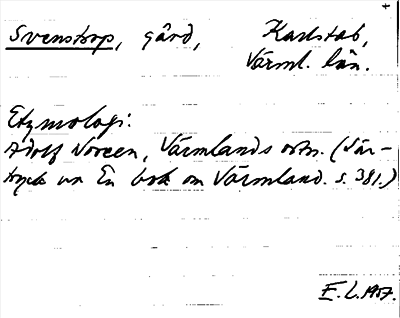 Svenstrop, gård, Karlstad,
Värml. län.
Etymologi:
Adolf Noreen, Värmlands ortn. (Sär-
tryck ur En bok om Värmland. s. 381.)
E. L. 1957.